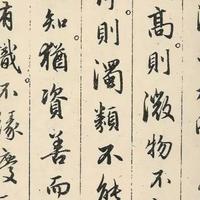 高則微物不
則濁類不能
知猶資善而
有識不緣慶